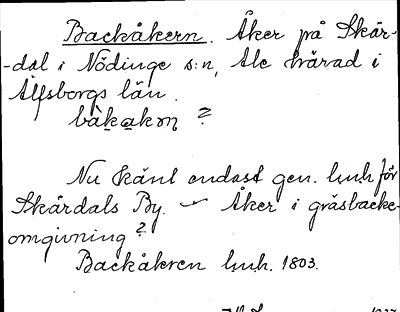 Backåkern. Åker på Skår-
-dal i Nödinge s:n, Ale härad i
Älfsborgs län.
bàkakɒn ?
Nu känt endast gen. lm.h för
Skårdals By. – Åker i gräsbacke-
omgivning ?
Backåkren lm.h. 1803.